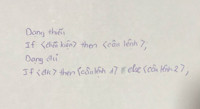 Dạng thiếu
If <điều kiện> then <câu lệnh>;
Dạng đủ
If <đk> then <câu lệnh 1> else <câu lệnh 2>;